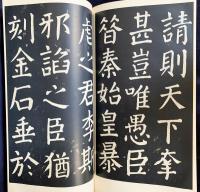 請則天下幸
甚豈唯愚臣
昔秦始皇暴
虐之君李斯
邪諂之臣猶
刻金石垂於